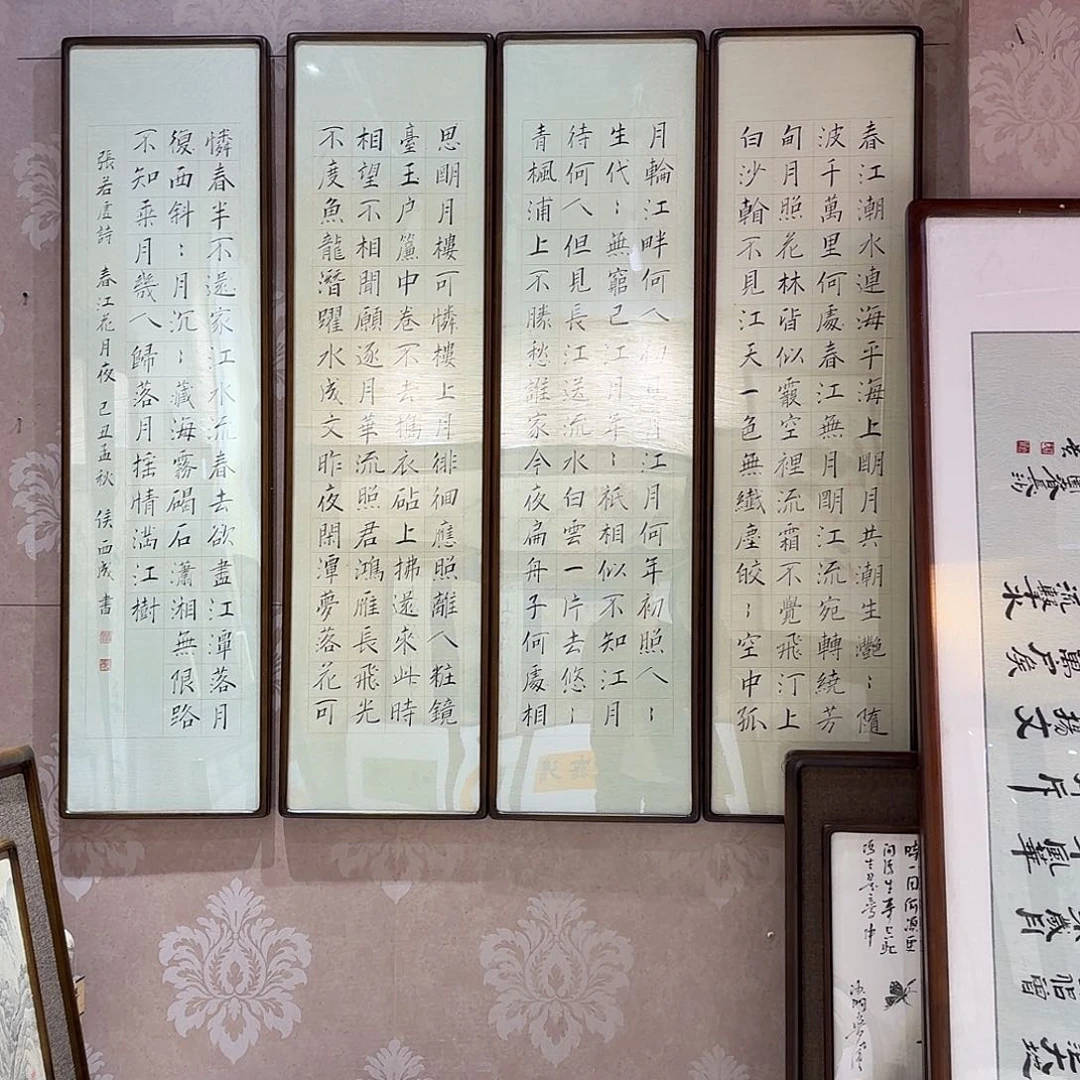 春江潮水連海平海上明月共潮生灩〻隨
波千萬里何處春江無月明江流宛轉繞芳
甸月照花林皆似霰空裡流霜不覺飛汀上
白沙翰不見江天一色無纖塵皎〻空中孤
月輪江畔何人初見月江月何年初照人〻
生代〻無窮已江月年〻祇相似不知江月
待何人但見長江送流水白雲一片去悠〻
青楓浦上不勝愁誰家今夜扁舟子何處相
思明月樓可憐樓上月徘徊應照離人粧鏡
臺玉户簾中卷不去搗衣砧上拂還來此時
相望不相聞願逐月華流照君鴻雁長飛光
不度魚龍潛躍水成文昨夜閑潭夢落花可
憐春半不還家江水流春去欲盡江潭落月
復西斜〻月沉〻藏海霧碣石瀟湘無限路
不知乘月幾人歸落月摇情滿江樹
張若虛詩 春江花月夜 己丑孟秋 侯西成書